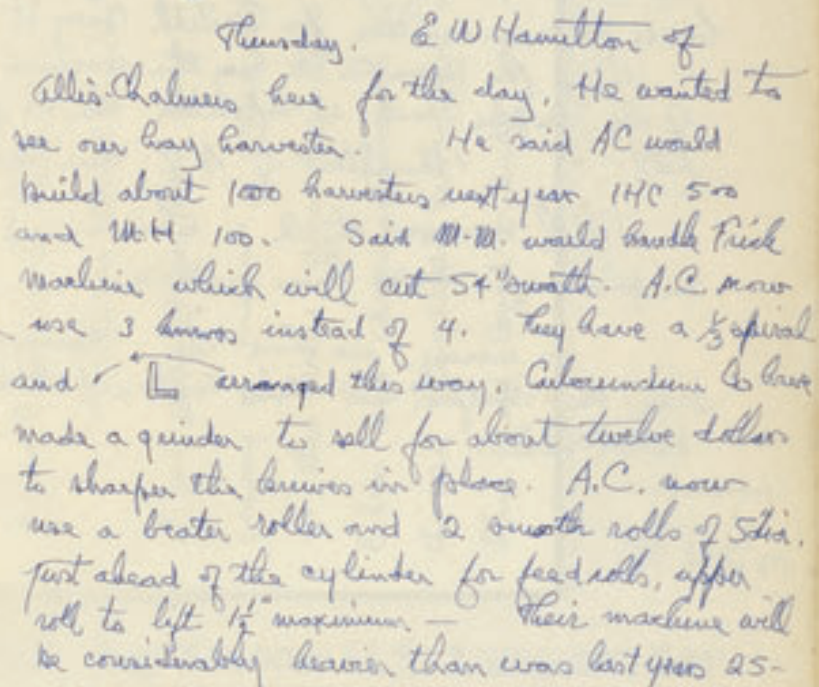 Thursday. E W Hamilton of
Allis-Chalmers here for the day. He wanted to
see our hay harvester. He said AC would
build about 1000 harvesters next year IHC 500
and M-H 100. Said M-M. would handle Frick
machine which will cut 54" swath. A.C. now
use 3 knives instead of 4. They have a 1/3 spiral
and L arranged this way. Carborundum Co have
made a grinder to sell for about twelve dollars
to sharpen the knives in place. A.C. now
use a beater roller and 2 smooth rolls of 5" dia.
just ahead of the cylinder for feed rolls, upper
roll to lift 1½" maximum — Their machine will
be considerably heavier than was last years 25-